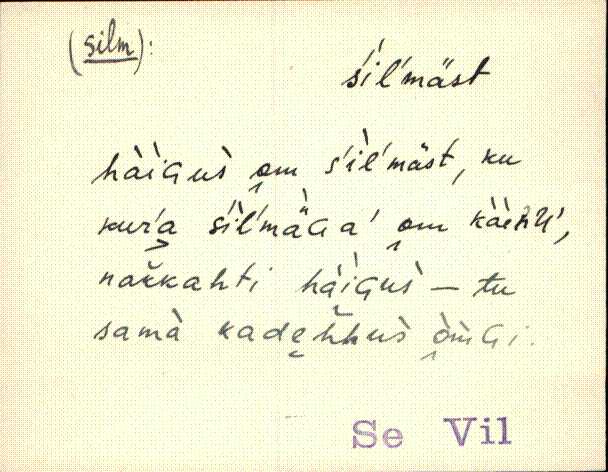 (silm):
s'il'mäst
hàìɢus̀ o̭m s'ìl'mäst, ku
kur'a sìl'mäɢa' o̭m käenü',
nakkahti häìɢus̀ – tu
samà kade̮hhus̀ o̭m̀ɢi.
Se Vil